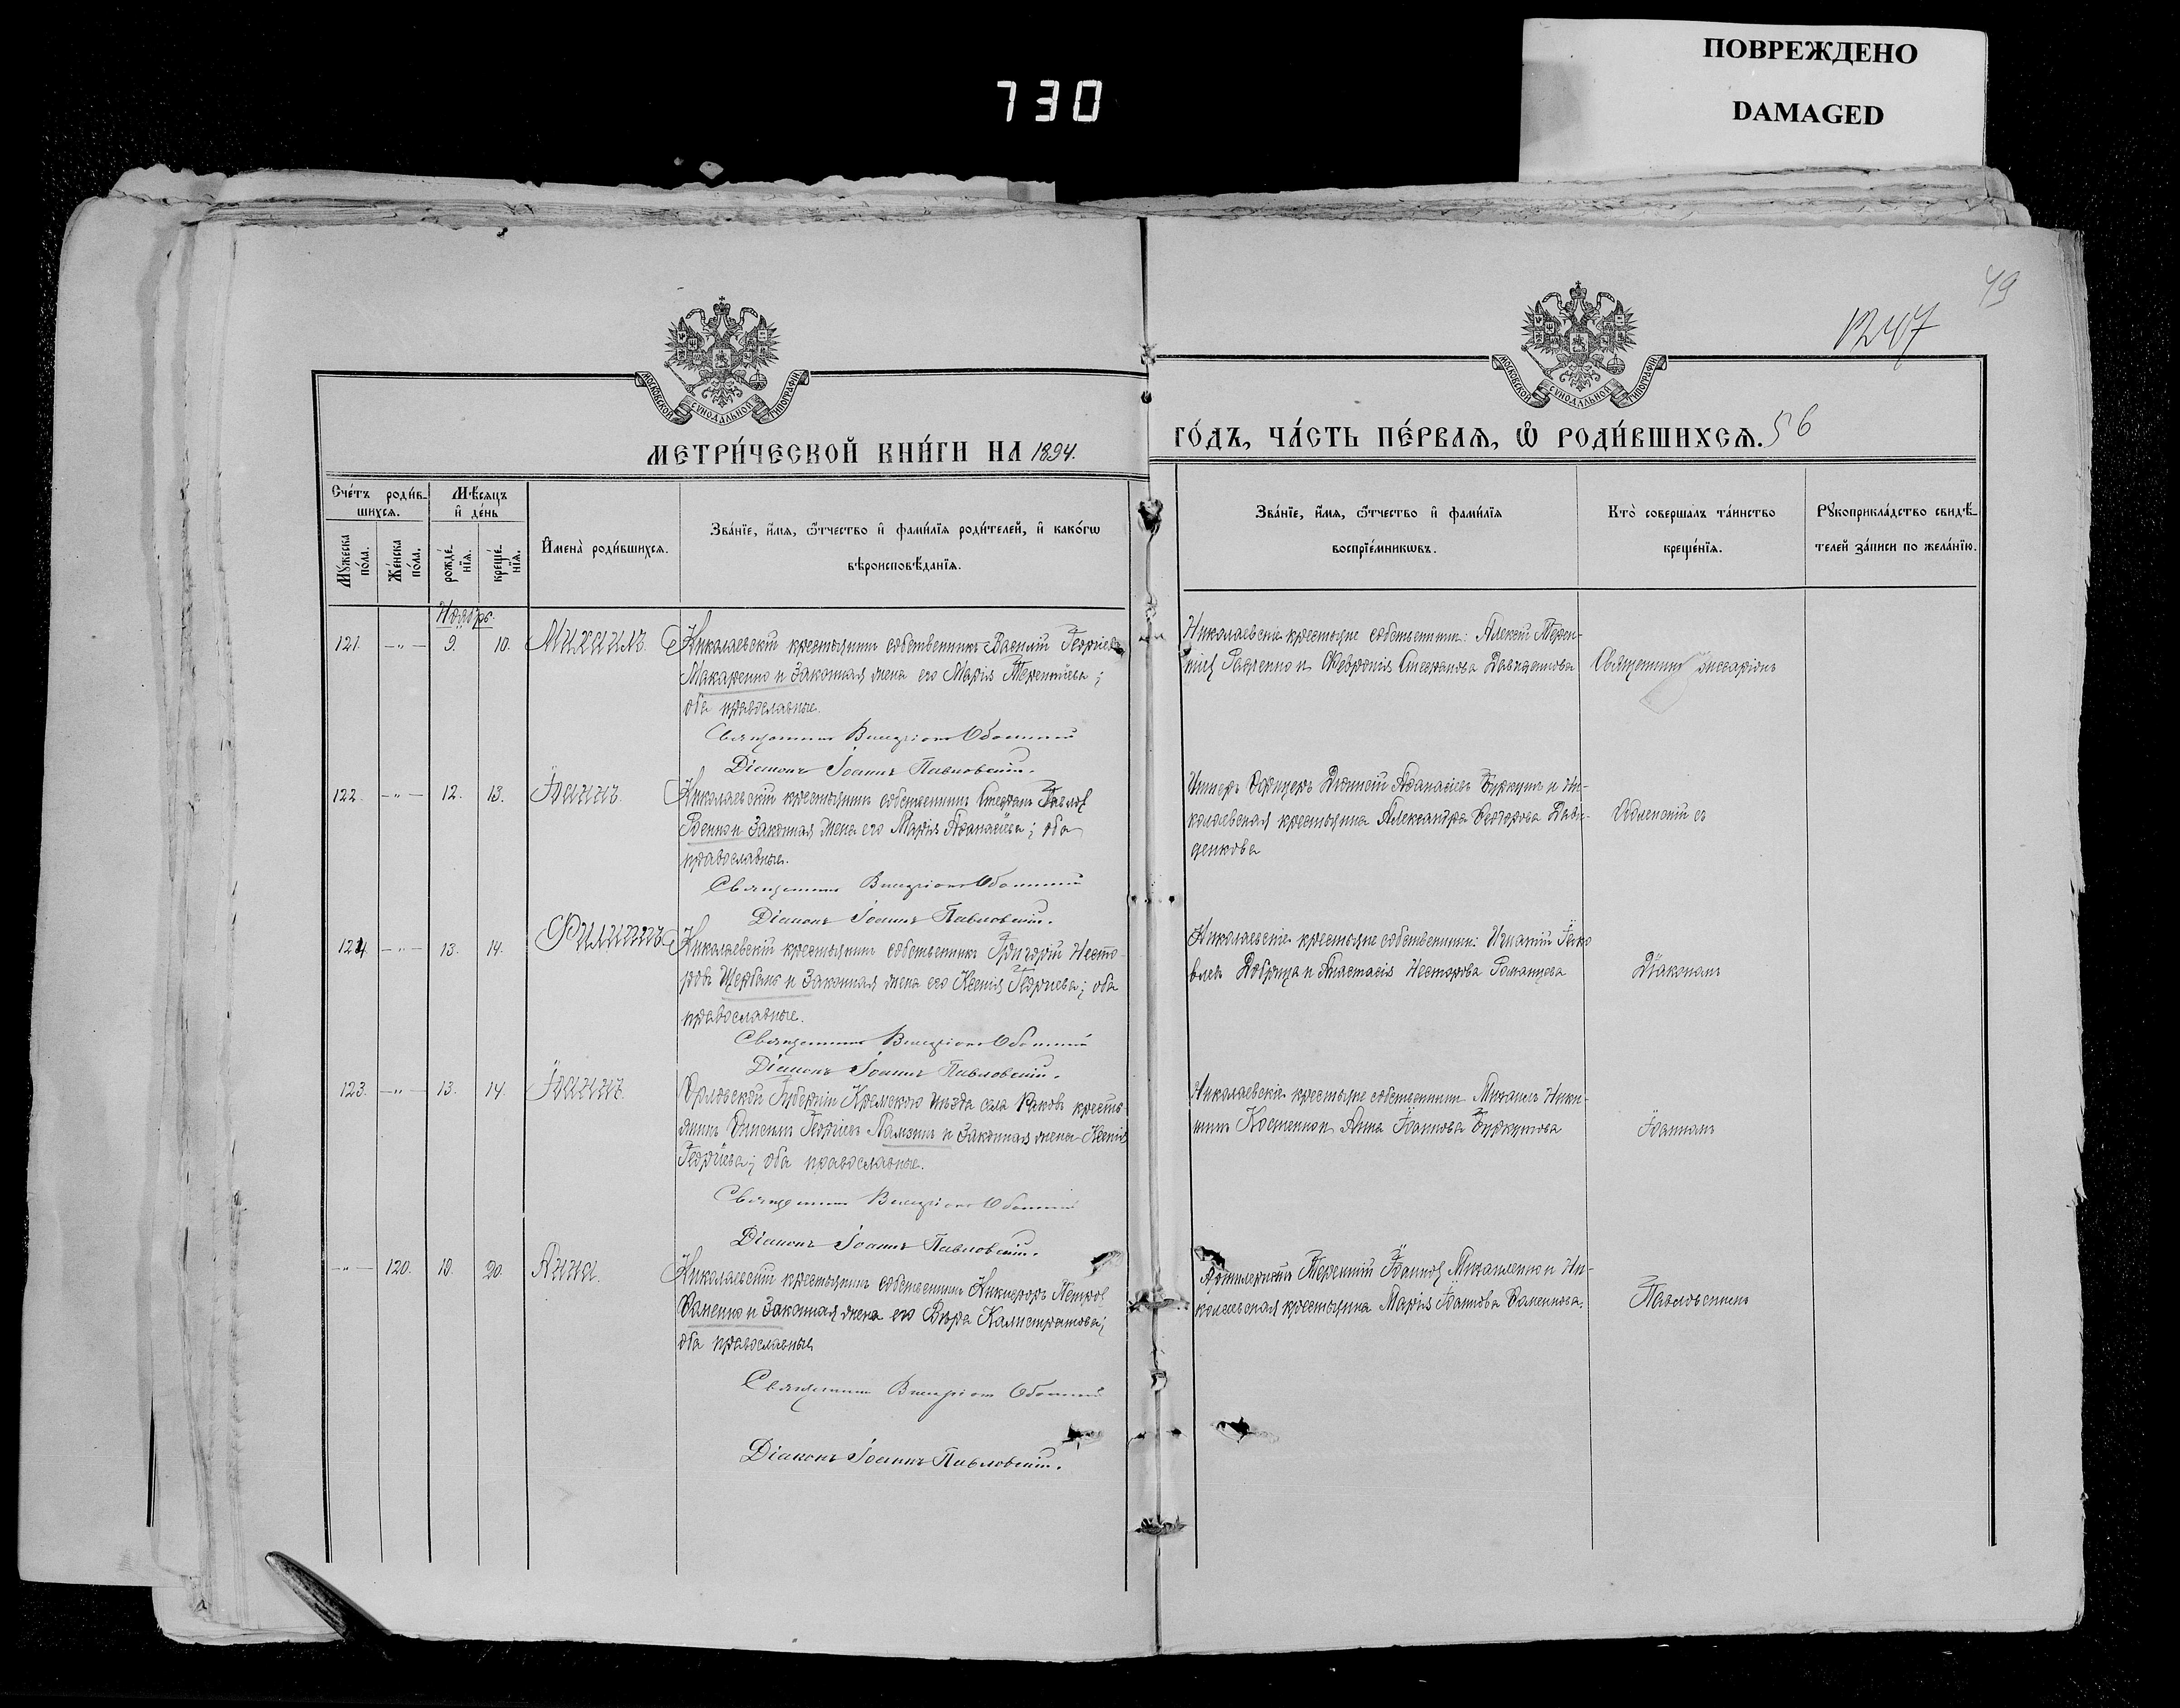 ПОВРЕЖДЕНО
DAMAGED
730
49
1247
МОСКОВСКОЙ СѴНОДАЛЬНОЙ ТИПОГРАФІИ
МОСКОВСКОЙ СѴНОДАЛЬНОЙ ТИПОГРАФІИ
МЕТРИ́ЧЕСКОЙ КНИ́ГИ НА 1894.
ГО́ДЪ, ЧА́СТЬ ПЕ́РВАЯ, Ѡ РОДИ́ВШИХСЯ. 56
Сче́тъ роди́в-
шихся.
Мѣ́сяцъ
и҆ де́нь
Мꙋ́жеска
по́ла.
Же́нска
по́ла.
рожде́-
нїя.
креще́-
нїя.
И҆мена̀ роди́вшихся.
Зва́нїе, и҆́мя, ѻ҆́тчество и҆ фами́лїя роди́телей, и҆ како́гѡ
вѣроисповѣ́данїя.
Зва́нїе, и҆́мя, ѻ҆́тчество и҆ фами́лїя
воспрїе́мникѡвъ.
Кто̀ совершалъ та́инство
креще́нїя.
Рꙋкоприкла́дство свидѣ́-
телей за́писи по жела́нїю.
Ноябрь.
121. — " — 9. 10. Михаилъ. Николаевскій крестьянинъ собственникъ Василій Георгіевъ
Макаренко и законная жена его Марія Терентіева;
оба православные.
Священникъ Виссаріонъ
Діаконъ Іоаннъ Павловскій.
Николаевскіе крестьяне собственники: Алексій Терен-
тіевъ и Февронія Стефанова Давиденкова
Священникъ Виссаріонъ
122. — " — 12. 13. Іоаннъ. Николаевскій крестьянинъ собственникъ Стефанъ
и законная жена его Марія Афанасіева; оба
православные.
Священникъ Виссаріонъ
Діаконъ Іоаннъ Павловскій.
Унтеръ Офицеръ Діонисій Афанасіевъ Буркутъ и Ни-
колаевская крестьянка Александра Феодорова Дави-
денкова
съ
124. — " — 13. 14. Филиппъ. Николаевскій крестьянинъ собственникъ Григорій Несто-
ровъ Щербако и законная жена его Ксенія Георгіева; оба
православные.
Священникъ Виссаріонъ
Діаконъ Іоаннъ Павловскій.
Николаевскіе крестьяне собственники: Игнатій Іако
влевъ Добрица и Анастасія Несторова Романцова
Діакономъ
123. — " — 13. 14. Іоаннъ. Орловской Губерніи Кромскаго уѣзда села Ракова кресть-
янинъ Онисимъ Георгіевъ Ламзинъ и законная жена Ксенія
Георгіева; оба православные.
Священникъ Виссаріонъ
Діаконъ Іоаннъ Павловскій.
Николаевскіе крестьяне собственники Михаилъ Ники-
тинъ Костенко и Анна Іоаннова Буркутова
Іоанномъ
— " — 120. 19. 20. Анна. Николаевскій крестьянинъ собственникъ Никифоръ Петровъ
Фоменко и законная жена его Вѣра Калистратова;
оба православные
Священникъ Виссаріонъ
Діаконъ Іоаннъ Павловскій.
Терентій Іоанновъ Михайленко и Ни-
колаевская крестьянка Марія Іоаннова Фоменкова.
Павловскимъ